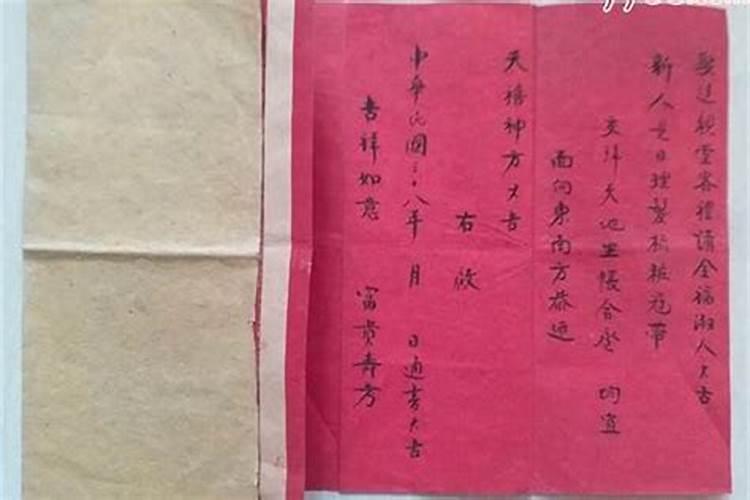 娶送親堂客禮請全福湘人大吉
新人是日理髮梳粧冠帶
交拜天地坐帳合巹 均宜
面向東南方恭迎
天禧神方大吉
右啟
中華民國三十八年 月 日通書大吉
吉祥如意 富貴壽考